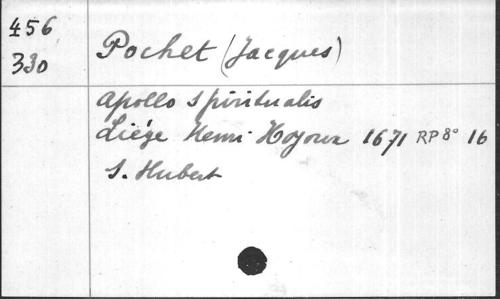 456
330
Pochet (Jacques)
Apollo Spiritualis
Liége Henri Hoyoux 1671 RP 8° 16
S. Hubert